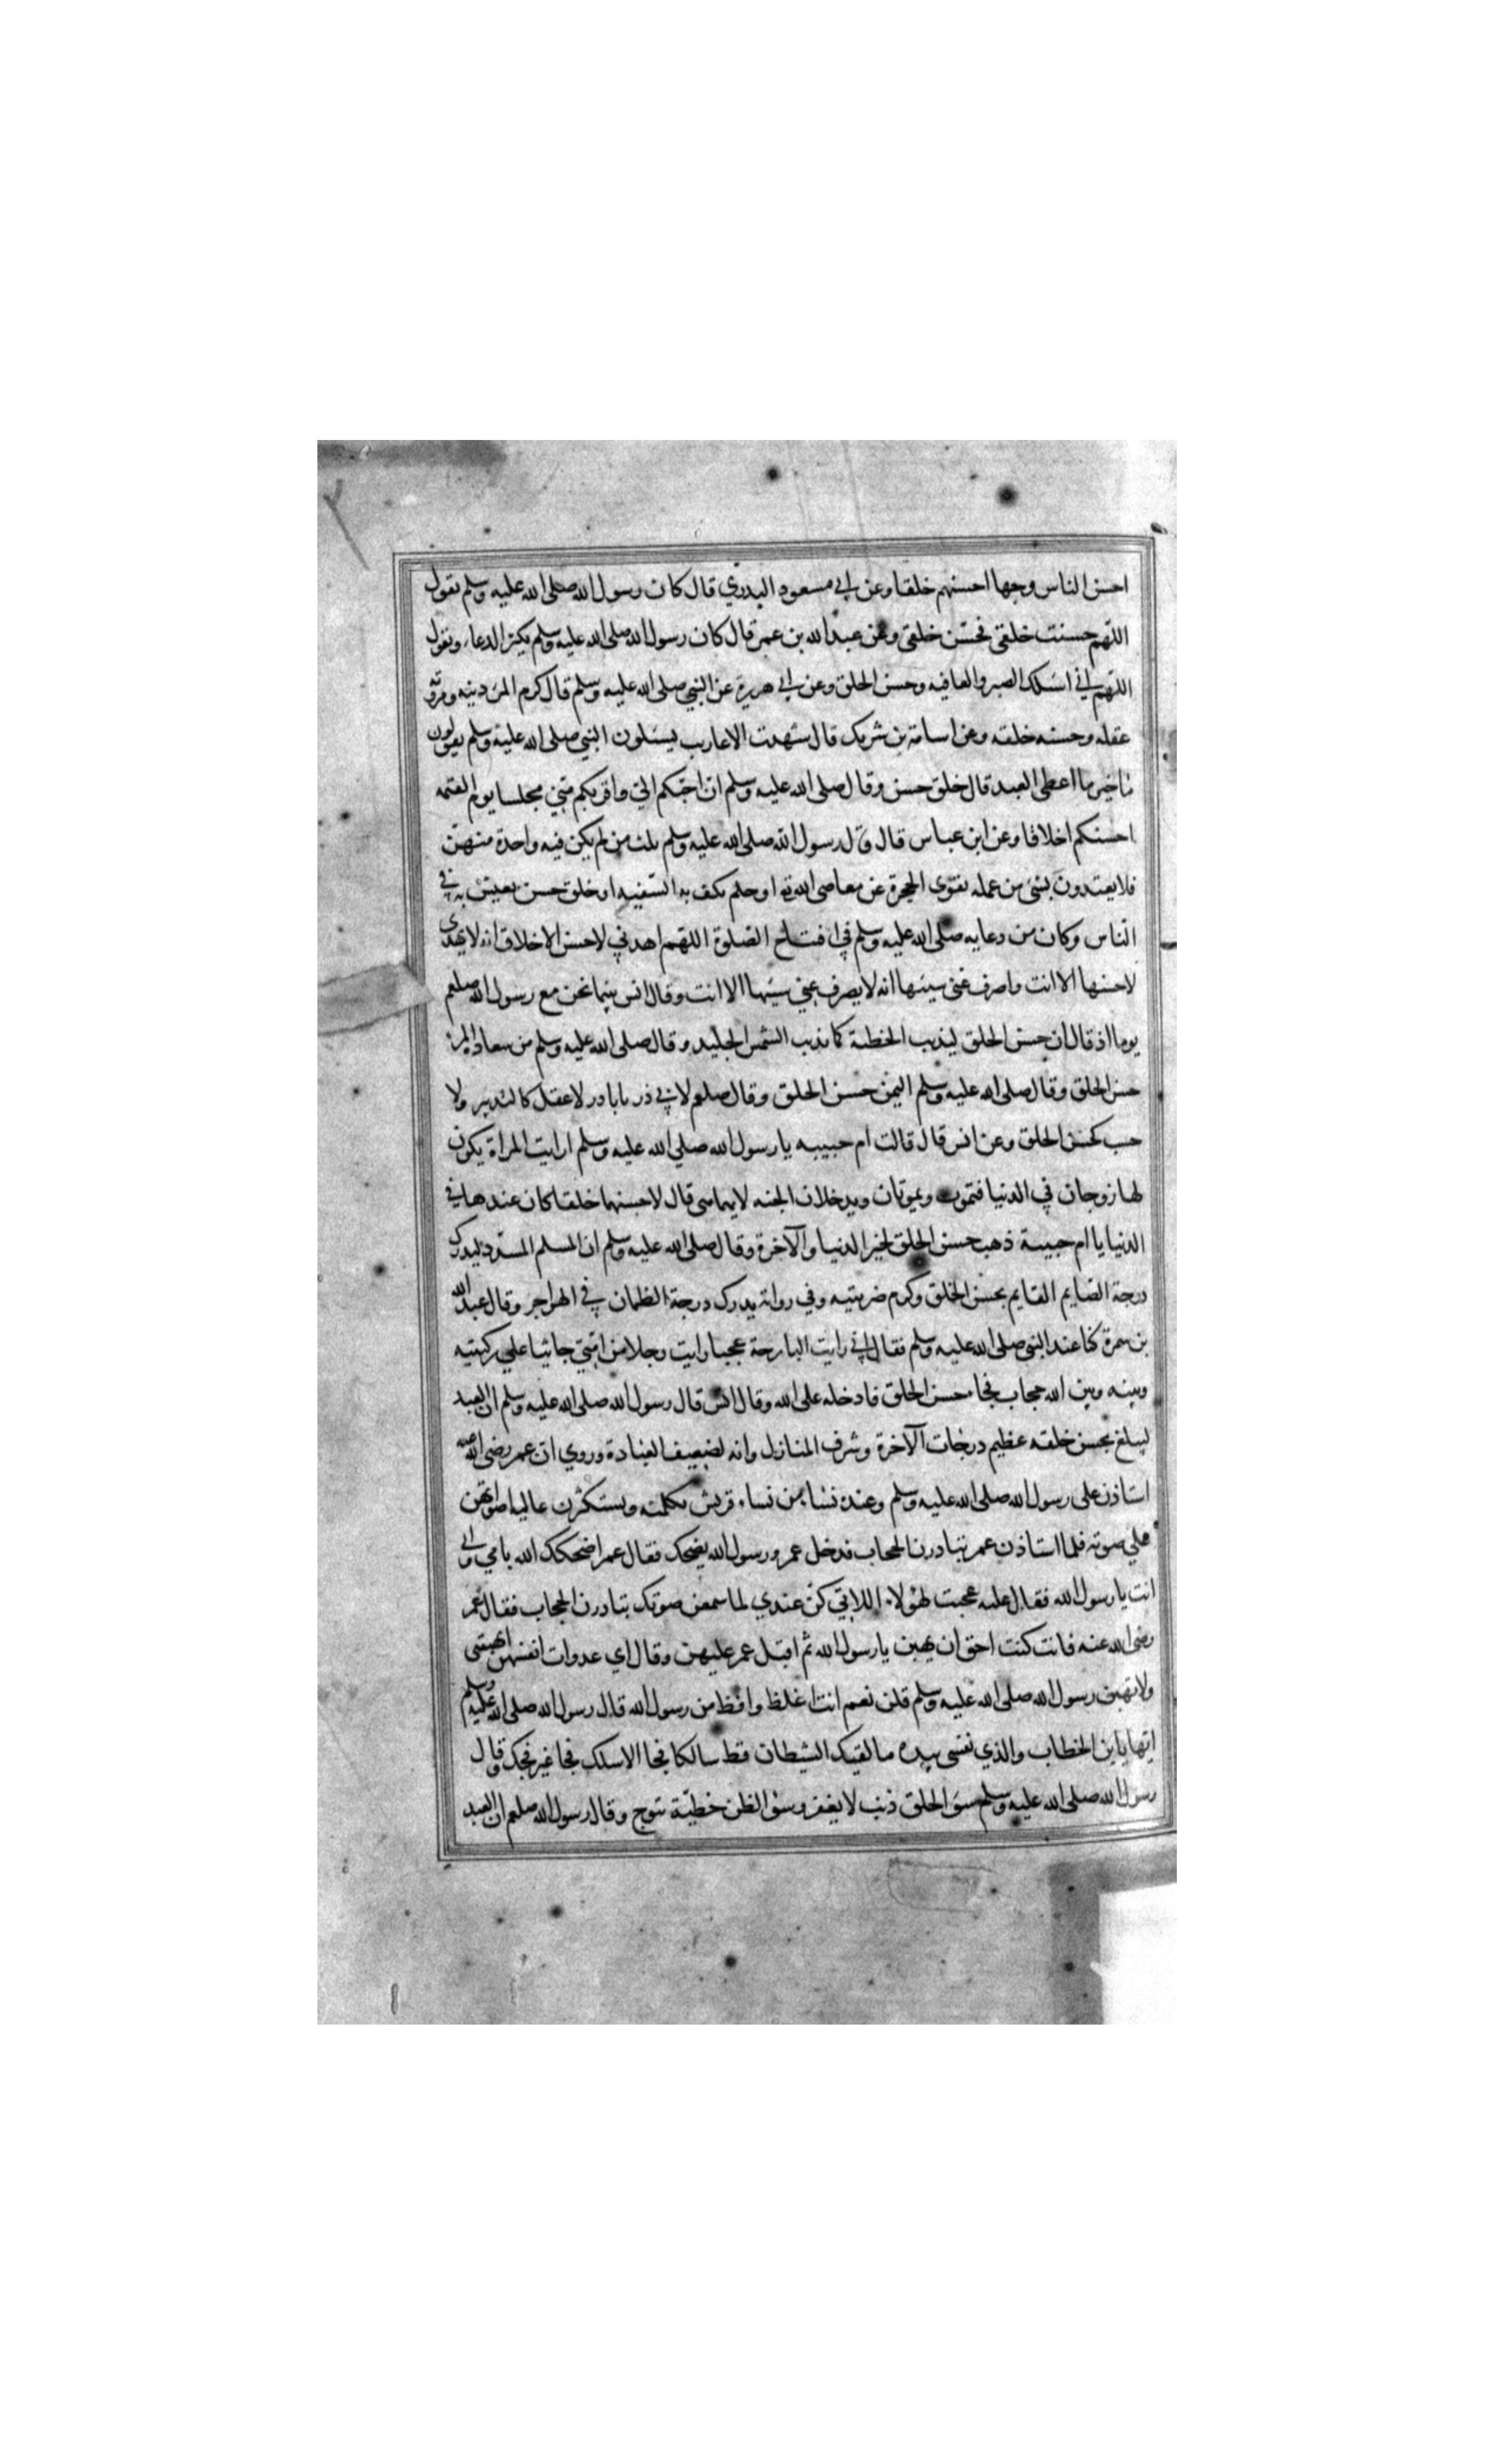 احسن الناس وجها احسنهم خلقا وعن ابي مسعود البدري قال كان رسول الله صلى الله عليه وسلم يقول
اللهم حسنت خلقي فحسّن خلقي وعن عبد الله بن عمر قال كان رسول الله صلى الله عليه وسلم يكثر الدعاء ويقول
اللهم اني اسئلك الصبر والعافيه وحسن الخلق وعن ابي هريرة عن النبي صلى الله عليه وسلم قال كرم المرء دينه ومروته
عقله وحسنه خلقه وعن اسامة بن شريك قال شهدت الاعاريب يسئلون النبي صلى الله عليه وسلم يقولون
ما خير ما اعطى العبد قال خلق حسن وقال صلى الله عليه وسلم ان احبّكم اليّ واقربكم منّي مجلسا يوم القيمه
احسنكم اخلاقا وعن ابن عباس قال قال رسول الله صلى الله عليه وسلم ثلث من لم يكن فيه واحدة منهن
فلا يعتدون بشئ من عمله تقوى تحجزة عن معاصي الله تع او حلم يكف به السّفيه او خلق حسن يعيش به في
الناس وكان من دعايه صلى الله عليه وسلم في افتتاح الصلوة اللهم اهدني لاحسن الاخلاق انه لا يهدي
لاحسنها الا انت واصرف عني سيئها انه لا يصرف عني سيئها الا انت وقال انس بينما نحن مع رسول الله صلعم
يوما اذ قال ان حسن الخلق ليذيب الخطئة كما تذيب الشمس الجليد وقال صلى الله عليه وسلم من سعادة المرء
حسن الخلق وقال صلى الله عليه وسلم اليمن حسن الخلق وقال صلعم لابي ذر يا باذر لا عقل كالتدبير ولا
حسب كحسن الخلق وعن انس قال قالت ام حبيبه يا رسول الله صلي الله عليه وسلم ارايت المراة يكون
لها زوجان في الدنيا فتموت ويموتان ويدخلان الجنه لايهما هي قال لاحسنهما خلقا كان عندها في
الدنيا يا ام حبيبة ذهب حسن الخلق بخير الدنيا والآخرة وقال صلى الله عليه وسلم ان المسلم المسدد ليدرك
درجة الصايم القايم بحسن الخلق وكرم ضريبته وفي رواية يدرك درجة الظمان في الهواجر وقال عبد الله
بن سمرة كنا عند النبي صلى الله عليه وسلم فقال اني رايت البارحة عجبا رايت رجلا من امتي جاثيا علي ركبتيه
وبينه وبين الله حجاب فجاء حسن الخلق فادخله على الله وقال انس قال رسول الله صلى الله عليه وسلم ان العبد
ليبلغ بحسن خلقه عظيم درجات الآخرة وشرف المنازل وانه لضعيف العبادة وروي ان عمر رضي الله عنه
استاذن على رسول الله صلى الله عليه وسلم وعنده نساء من نساء قريش يكلمنه ويستكثرن عاليه اصواتهن
على صوته فلما استاذن عمر تبادرن الحجاب فدخل عمر ورسول الله يضحك فقال عمر اضحكك الله بامي وابي
انت يا رسول الله فقال عليه عجبت لهؤلاء اللاتي كنّ عندي لما سمعن صوتك تبادرن الحجاب فقال عمر
رضي الله عنه فانت كنت احق ان يهبن يا رسول الله ثم اقبل عمر عليهن وقال اي عدوات انفسهن اتهبنني
ولا تهبن رسول الله صلى الله عليه وسلم قلن نعم انت اغلظ وافظ من رسول الله قال رسول الله صلى الله عليه وسلم
ايها يا ابن الخطاب والذي نفسي بيده ما لقيك الشيطان قط سالكا فجا الا سلك فجا غير فجك وقال
رسول الله صلى الله عليه وسلم سوء الخلق ذنب لا يغفر وسوء الظن خطيّة تنوج وقال رسول الله صلعم ان العبد